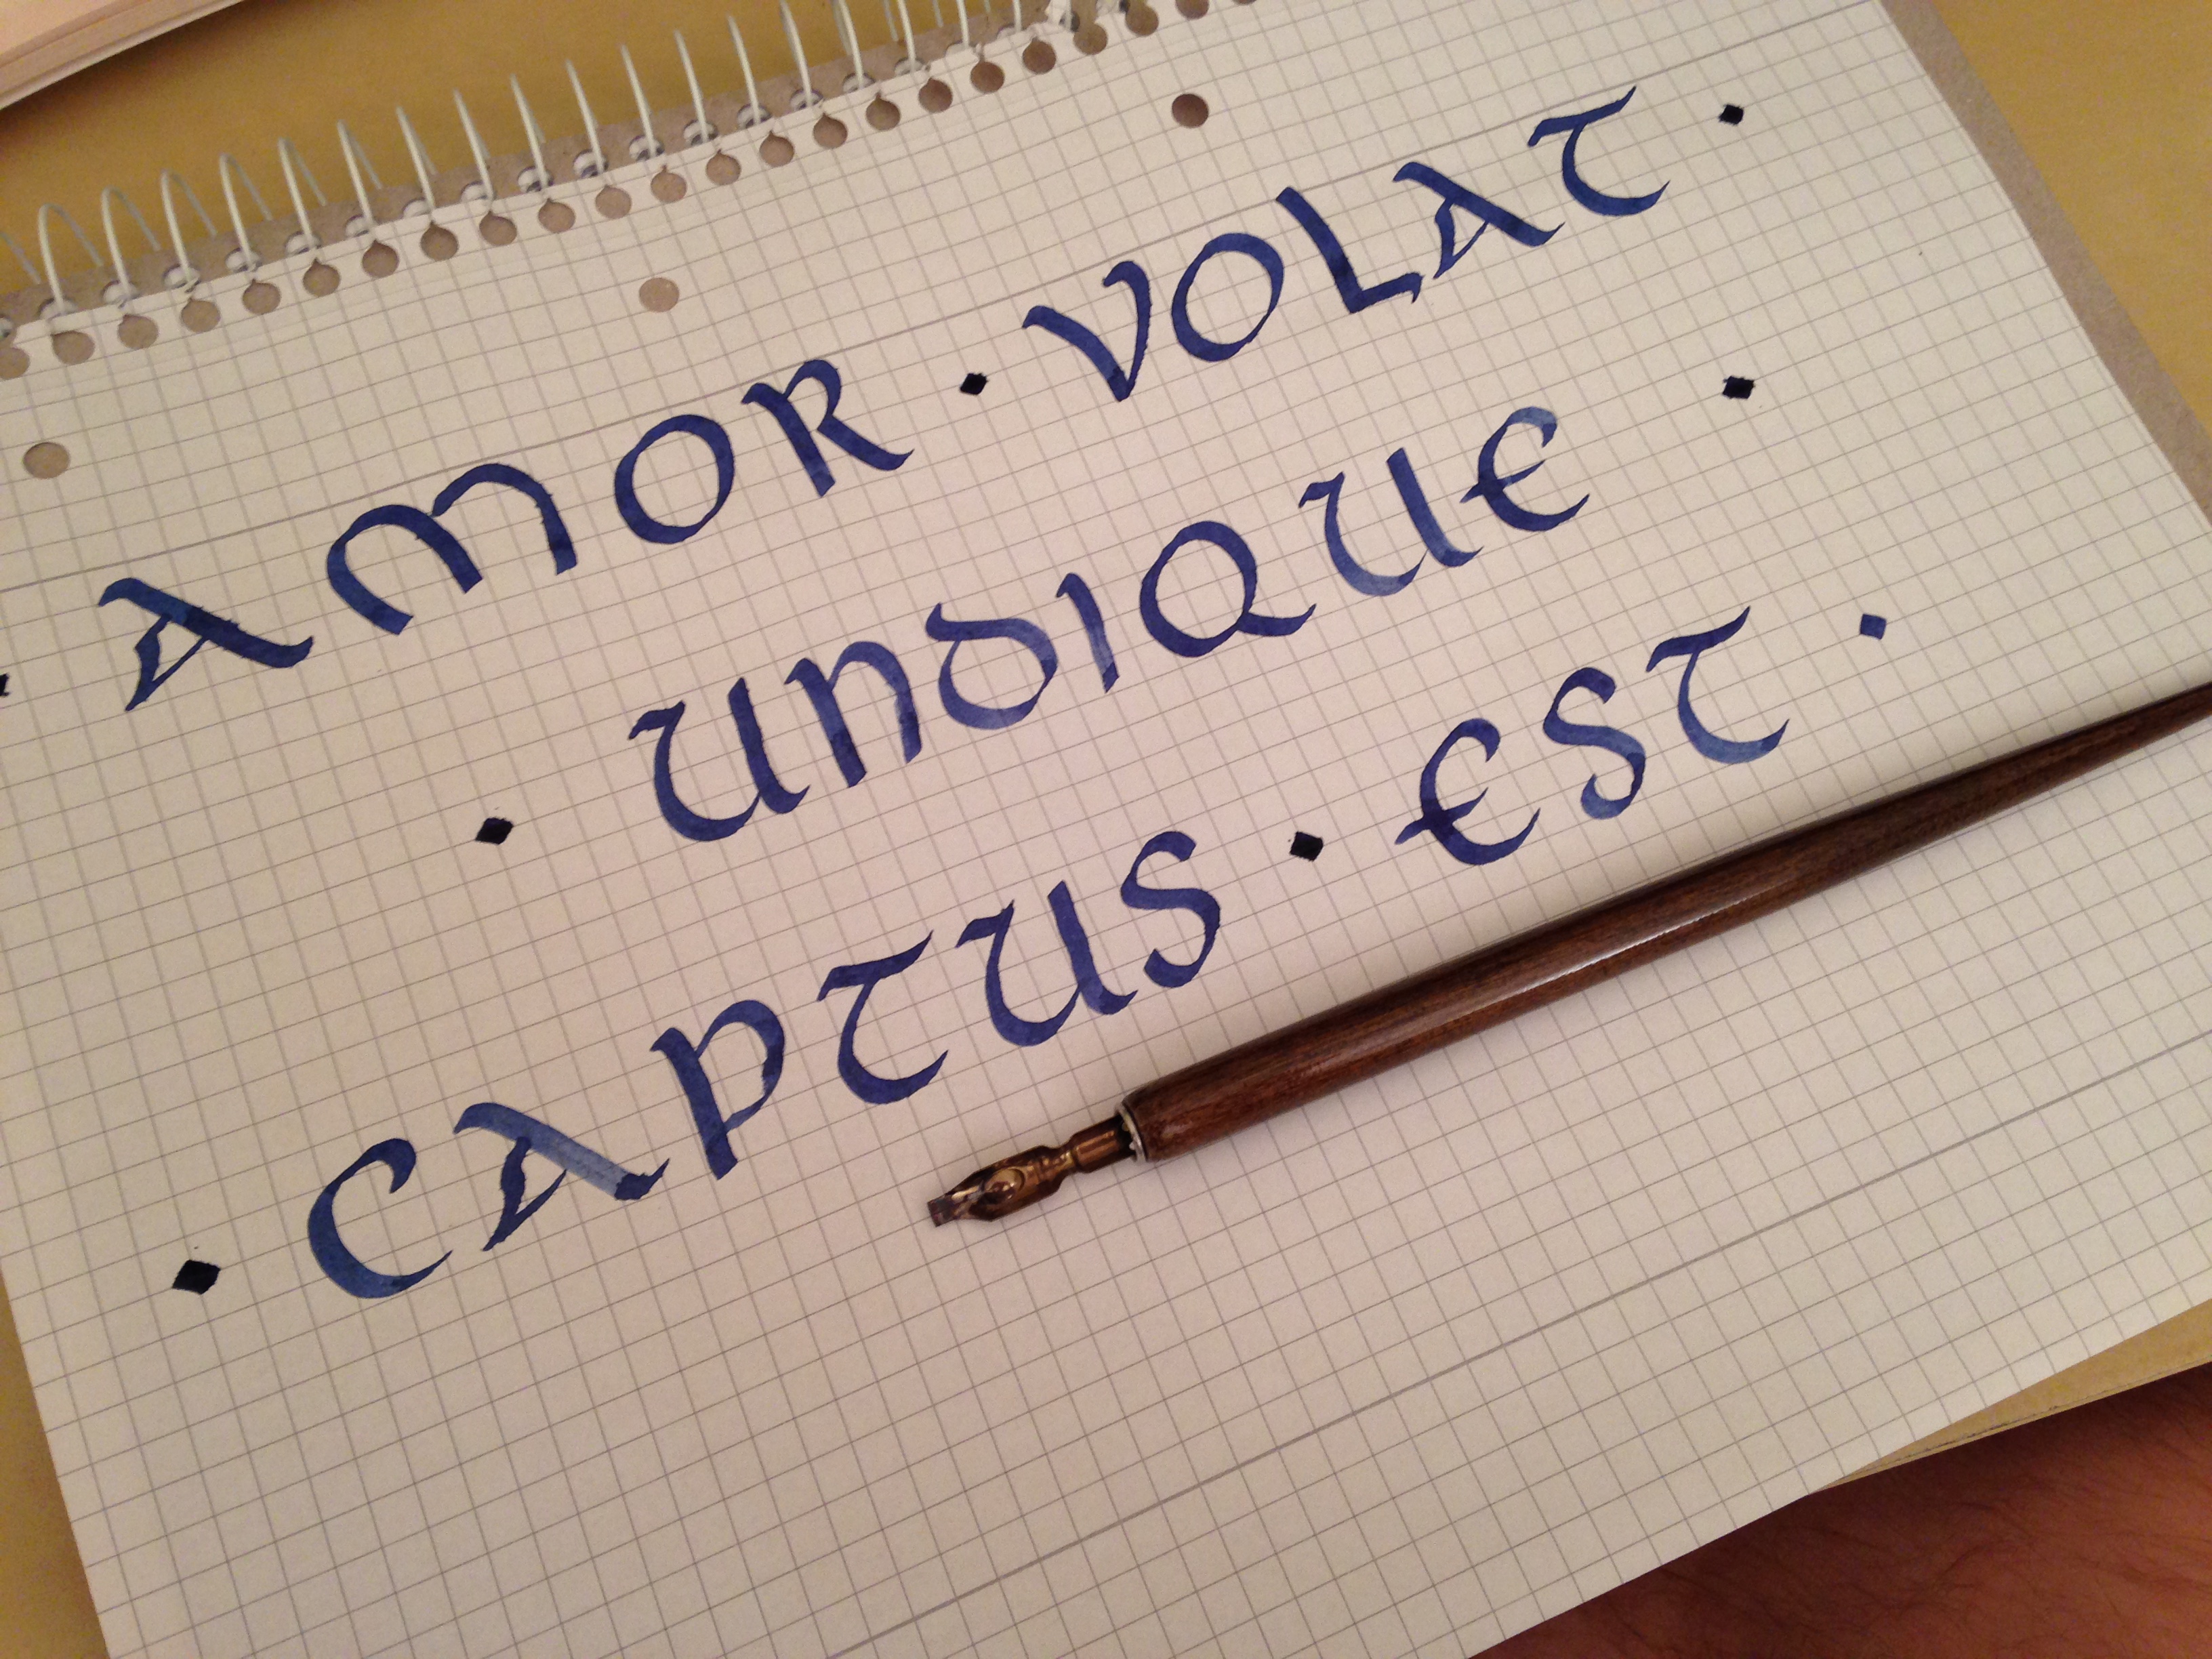 · AMOR · VOLAT ·
· UNDIQUE ·
· CAPTUS · EST ·